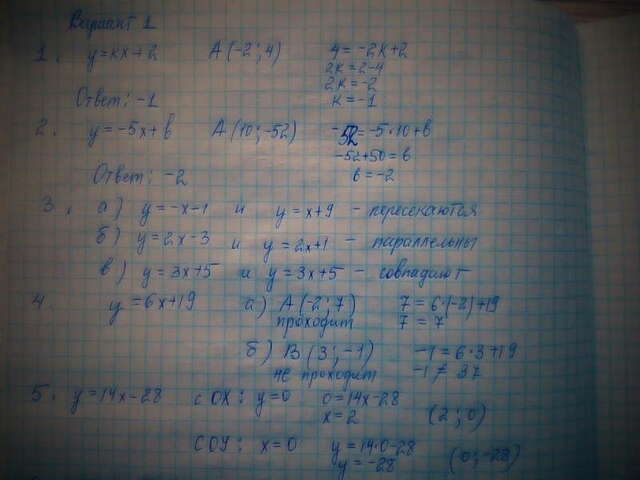 Вариант 1
1. y=kx+2 A(-2;4) 4=-2k+2
2k=2-4
2k=-2
Ответ: -1 k=-1
2. y=-5x+b A(10;-52) -52=-5·10+b
-52+50=b
Ответ: -2 b=-2
3. а) y=-x-1 и y=x+9 - пересекаются
б) y=2x-3 и y=2x+1 - параллельны
в) y=3x+5 и y=3x+5 - совпадают
4. y=6x+19 а) A(-2;7) 7=6·(-2)+19
проходит 7=7
б) B(3;-1) -1=6·3+19
не проходит -1≠37
5. y=14x-28 с OX: y=0 0=14x-28
x=2 (2;0)
С OY: x=0 y=14·0-28
y=-28 (0;-28)